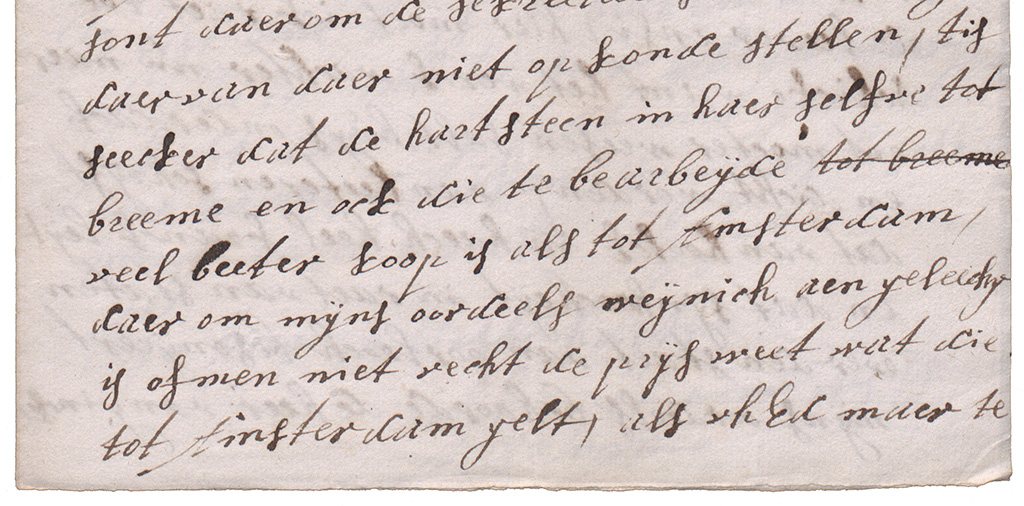 sont daerom de
daervan daer niet op konde stellen, tis
seecker dat de hartsteen in haer selfve tot
breeme en ock die te bearbeÿde tot breeme
veel beeter koop is als tot Amsterdam,
daer om mÿns oordeels weÿnich aen geleechg
is of men niet recht de prÿs weet wat die
tot Amsterdam gelt, als vhEd maer te